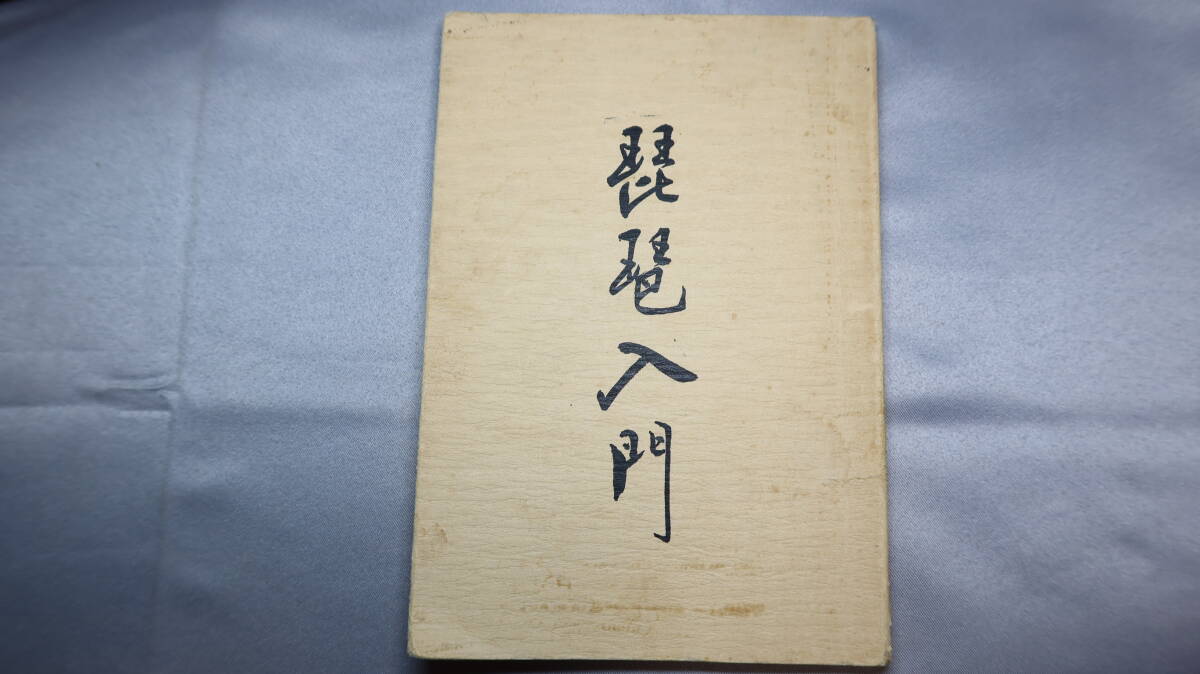 琵琶入門